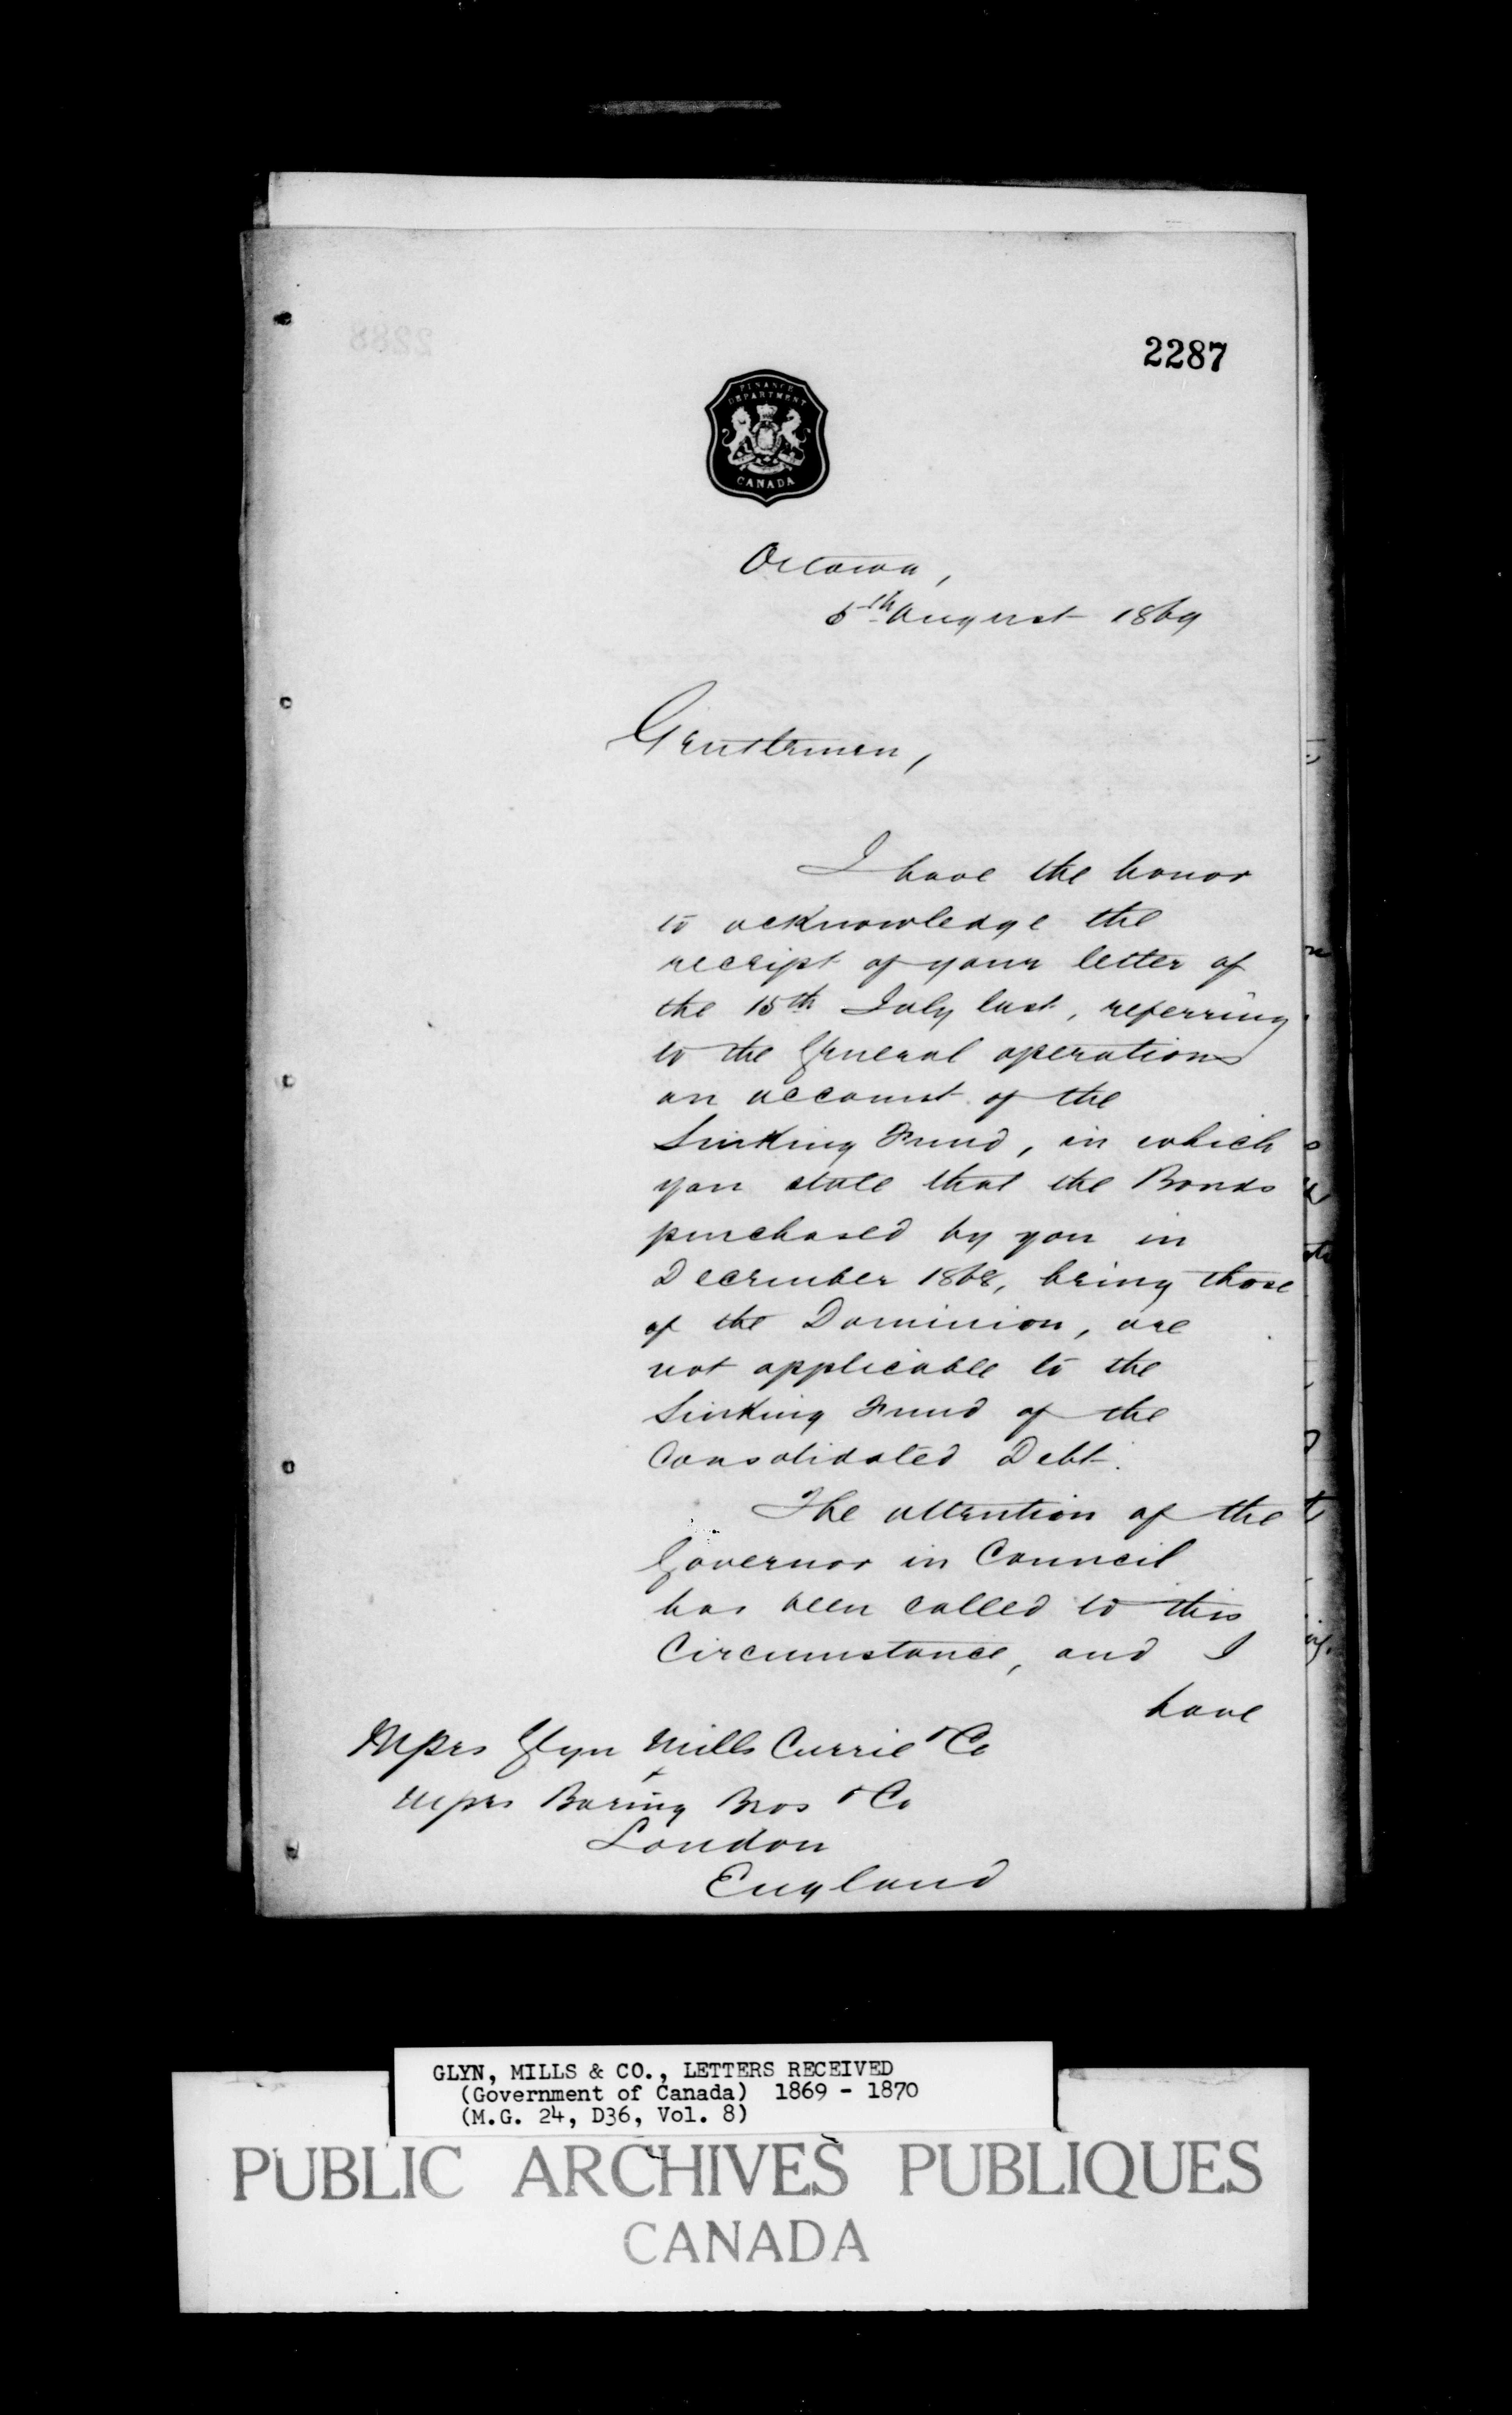 2287
FINANCE
DEPARTMENT
CANADA
Ottawa,
5th August 1869
Gentlemen,
I have the honor
to acknowledge the
receipt of your letter of
the 15th July last, referring
to the General operations
on account of the
Sinking Fund, in which
you state that the Bonds
purchased by you in
December 1868, being those
of the Dominion, are
not applicable to the
Sinking Fund of the
Consolidated Debt.
The attention of the
Governor in Council
has been called to this
Circumstance, and I
have
Messrs Glyn Mills Currie & Co
&
Messrs Baring Bros & Co
London
England
GLYN, MILLS & CO., LETTERS RECEIVED
(Government of Canada) 1869 - 1870
(M.G. 24, D36, Vol. 8)
PUBLIC ARCHIVES PUBLIQUES
CANADA